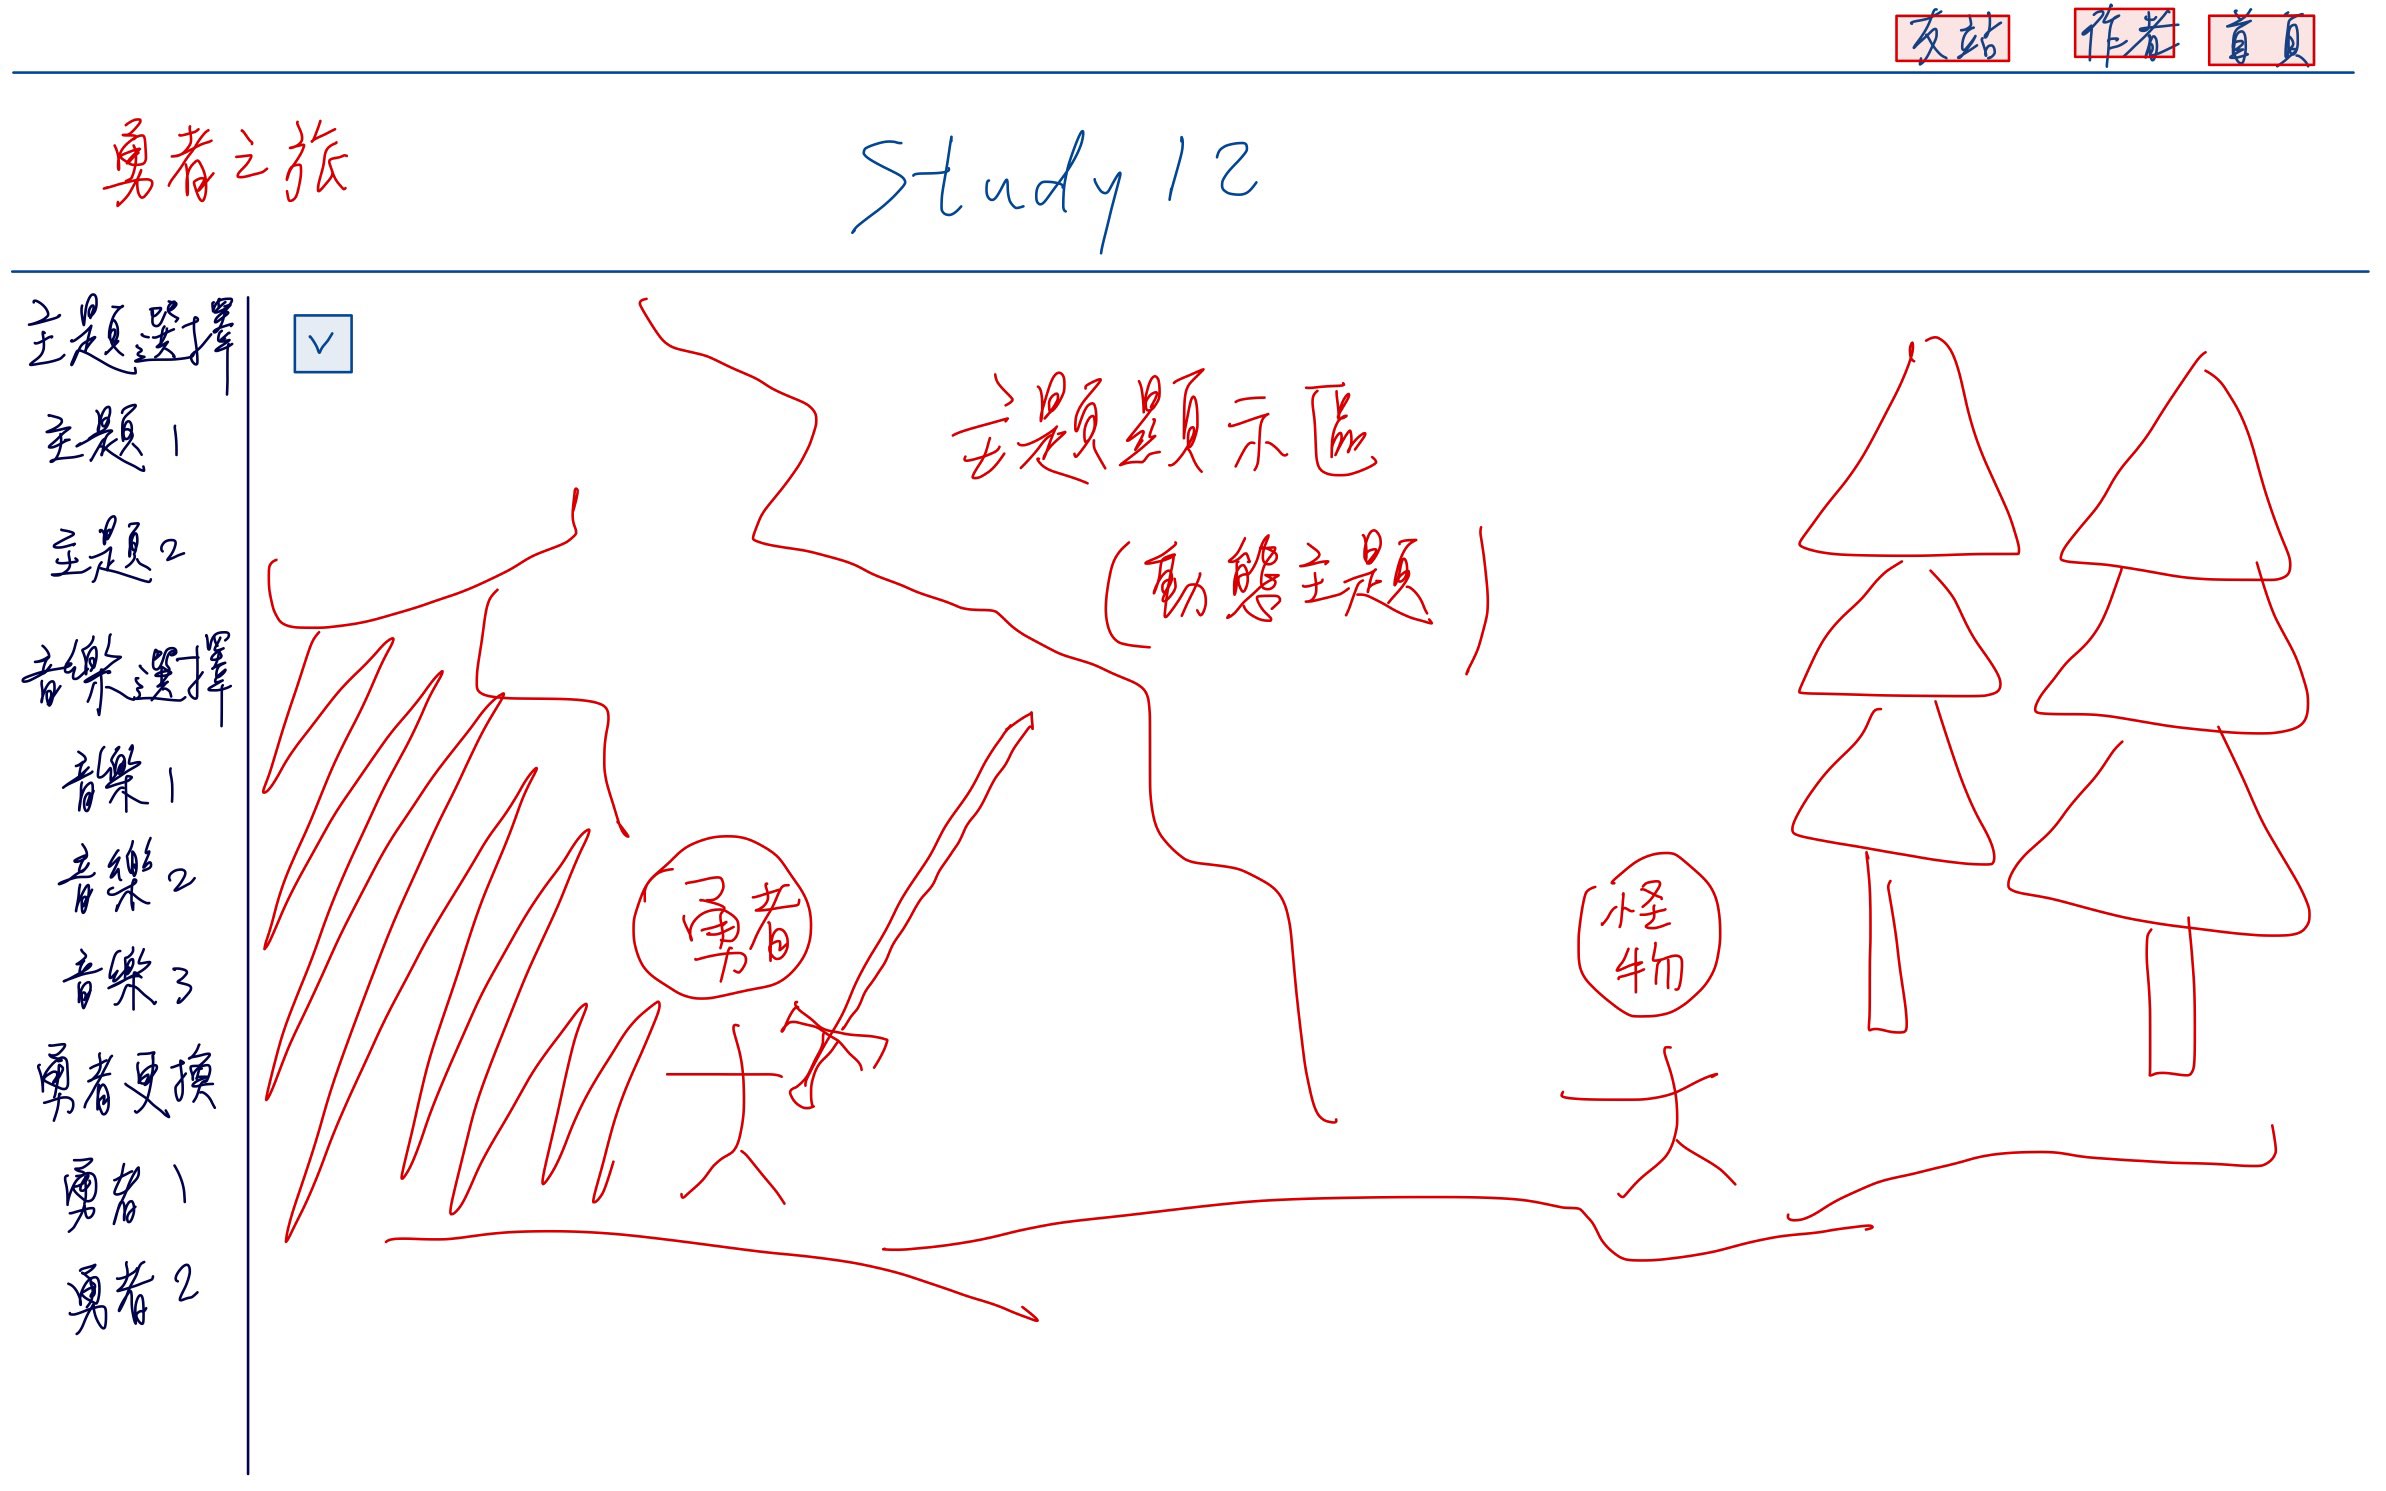 友站 作者 首頁
勇者之旅
Study 12
主題選擇
主題1
主題2
音樂選擇
音樂1
音樂2
音樂3
勇者更換
勇者1
勇者2
主題顯示區
(動態主題)
勇者
怪
物